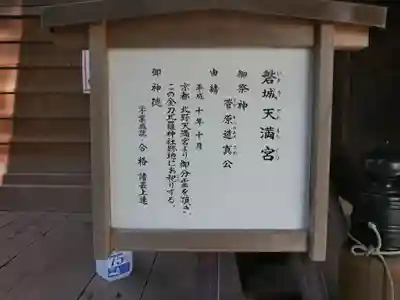 磐城天満宮
御祭神
菅原道真公
由緒
平成十年十月
京都 北野天満宮より御分霊を頂き、
この金刀比羅神社跡地にお祀りする。
御神徳
学業成就 合格 諸芸上達
75